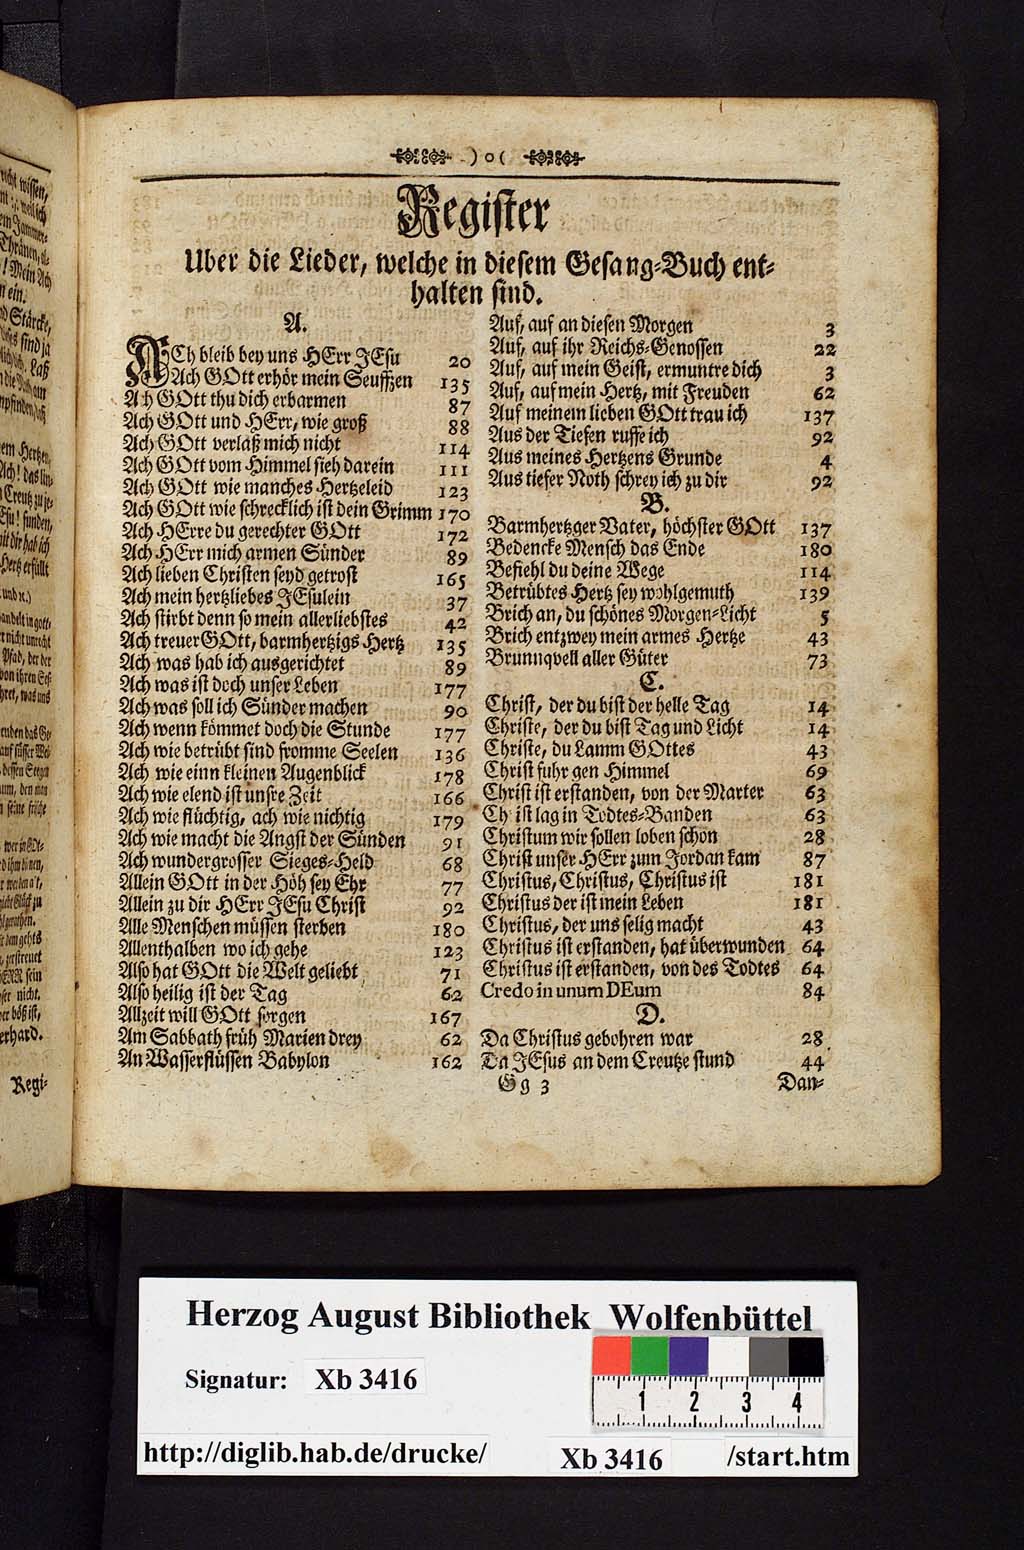 ) o (
Register
Uber die Lieder, welche in diesem Gesang-Buch ent-
halten sind.
A.
ACh bleib bey uns HErr JEsu 20
Ach GOtt erhör mein Seuffzen 135
Ach GOtt thu dich erbarmen 87
Ach GOtt und HErr, wie groß 88
Ach GOtt verlaß mich nicht 114
Ach GOtt vom Himmel sieh darein 111
Ach GOtt wie manches Hertzeleid 123
Ach GOtt wie schrecklich ist dein Grimm 170
Ach HErre du gerechter GOtt 172
Ach HErr mich armen Sünder 89
Ach lieben Christen seyd getrost 165
Ach mein hertzliebes JEsulein 37
Ach stirbt denn so mein allerliebstes 42
Ach treuer GOtt, barmhertzigs Hertz 135
Ach was hab ich ausgerichtet 89
Ach was ist doch unser Leben 177
Ach was soll ich Sünder machen 90
Ach wenn kömmet doch die Stunde 177
Ach wie betrübt sind fromme Seelen 136
Ach wie einn kleinen Augenblick 178
Ach wie elend ist unsre Zeit 166
Ach wie flüchtig, ach wie nichtig 179
Ach wie macht die Angst der Sünden 91
Ach wundergrosser Sieges-Held 68
Allein GOtt in der Höh sey Ehr 77
Allein zu dir HErr JEsu Christ 92
Alle Menschen müssen sterben 180
Allenthalben wo ich gehe 123
Also hat GOtt die Welt geliebt 71
Also heilig ist der Tag 62
Allzeit will GOtt sorgen 167
Am Sabbath früh Marien drey 62
An Wasserflüssen Babylon 162
Auf, auf an diesen Morgen 3
Auf, auf ihr Reichs-Genossen 22
Auf, auf mein Geist, ermuntre dich 3
Auf, auf mein Hertz, mit Freuden 62
Auf meinem lieben GOtt trau ich 137
Aus der Tiefen ruffe ich 92
Aus meines Hertzens Grunde 4
Aus tiefer Noth schrey ich zu dir 92
B.
Barmhertzger Vater, höchster GOtt 137
Bedencke Mensch das Ende 180
Befiehl du deine Wege 114
Betrübtes Hertz sey wohlgemuth 139
Brich an, du schönes Morgen-Licht 5
Brich entzwey mein armes Hertze 43
Brunnqvell aller Güter 73
C.
Christ, der du bist der helle Tag 14
Christe, der du bist Tag und Licht 14
Christe, du Lamm GOttes 43
Christ fuhr gen Himmel 69
Christ ist erstanden, von der Marter 63
Ch ist lag in Todtes-Banden 63
Christum wir sollen loben schon 28
Christ unser HErr zum Jordan kam 87
Christus, Christus, Christus ist 181
Christus der ist mein Leben 181
Christus, der uns selig macht 43
Christus ist erstanden, hat überwunden 64
Christus ist erstanden, von des Todtes 64
Credo in unum DEum 84
D.
Da Christus gebohren war 28
Da JEsus an dem Creutze stund 44
Gg 3 Dan-
Regi-
Herzog August Bibliothek Wolfenbüttel
Signatur: Xb 3416
1 2 3 4
http://diglib.hab.de/drucke/ Xb 3416 /start.htm